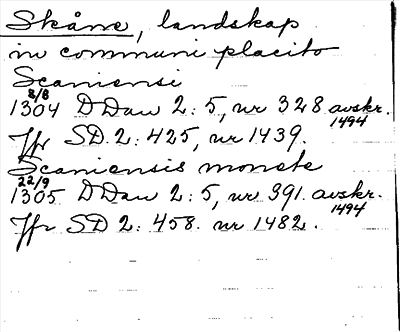 Skåne, landskap
in communi placito
Scaniensi
8/8
1304 DDan 2:5, nr 328 avskr. 1494
Jfr SD 2:425, nr 1439.
Scaniensis monete
22/9
1305 DDan 2:5, nr 391. avskr. 1494
Jfr SD 2:458. nr 1482.